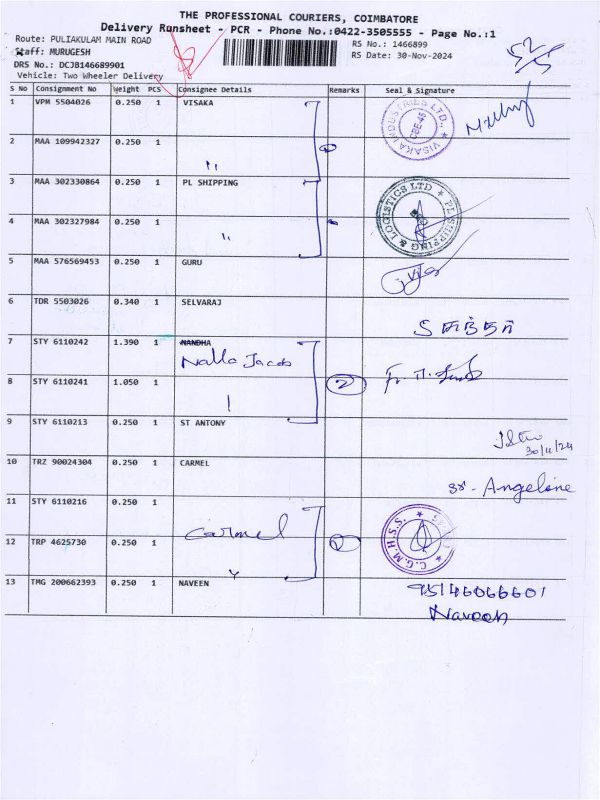 THE PROFESSIONAL COURIERS, COIMBATORE
Delivery Runsheet - PCR - Phone No.:0422-3505555 - Page No.:1
Route: PULIAKULAM MAIN ROAD
RS No.: 1466899
Staff: MURUGESH
RS Date: 30-Nov-2024
DRS No.: DCJB146689901
Vehicle: Two Wheeler Delivery
S No Consignment No Weight PCS Consignee Details Remarks Seal & Signature
1 VPM 5504026 0.250 1 VISAKA
VISAKA INDUSTRIES LTD. CBE-45
2 MAA 109942327 0.250 1 "
3 MAA 302330864 0.250 1 PL SHIPPING
PL SHIPPING & LOGISTICS LTD
4 MAA 302327984 0.250 1 "
5 MAA 576569453 0.250 1 GURU
6 TDR 5503026 0.340 1 SELVARAJ
7 STY 6110242 1.390 1 NANDHA
Nallo Jacob
8 STY 6110241 1.050 1 2
9 STY 6110213 0.250 1 ST ANTONY
30/11/24
10 TRZ 90024304 0.250 1 CARMEL
Sr. Angeline
11 STY 6110216 0.250 1
Carmel
C.G.M.H.S.S.
12 TRP 4625730 0.250 1
13 TMG 200662393 0.250 1 NAVEEN
95146066601
Naveen